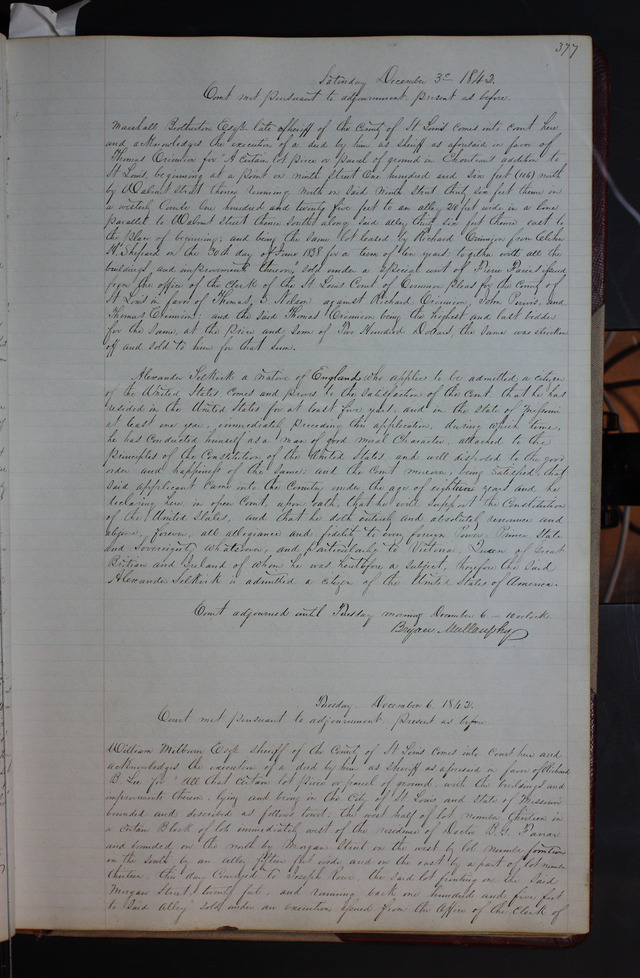 377
Saturday December 3rd 1842.
Court met pursuant to adjournment. present as before.
Marshall Brotherton Esqr. late sheriff of the County of St Louis comes into court here
and acknowledges the execution of a deed by him as sheriff as aforesaid in favor of
Thomas Crimion for "A certain lot piece or parcel of ground in Chouteaus addition to
St Louis, beginning at a point on Ninth Street One hundred and six feet (106) north
by Walnut Street thence running North on said Ninth Street thirty six feet thence on
a westerly Course one hundred and twenty five feet to an alley 20 feet wide in a line
parallel to Walnut Street thence South along said alley thirty six feet thence east to
the place of beginning; and being the same lot leased by Richard Crimion from
H. Shepard on the 30th day of June 1838 for a term of ten years together with all the
buildings and improvements thereon, sold under a special writ of Fieri Facias issued
from the office of the Clerk of the St Louis Court of Common pleas for the County of
St Louis in favor of Thomas S. Nelson against Richard Crimion, John Purvis and
Thomas Crimion; and the said Thomas Crimion being the highest and last bidder
for the same, at the price and sum of Five Hundred Dollars, the same was stricken
off and sold to him for that sum.
Alexander Selkirk a native of England who applies to be admitted a citizen
of the United States Comes and proves to the Satisfaction of the Court, that he has
resided in the United States for at least five years, and in the State of Missouri
at least one year, immediately preceding this application, during which time,
he has Conducted himself as a man of good moral Character, attached to the
principles of the Constitution of the United States and well disposed to the good
order and happiness of the same; and the Court moreover, being satisfied, that
said applicant Came into the Country under the age of eighteen years and he
declaring here, in open Court, upon oath, that he will support the Constitution
of the United States, and that he doth entirely and absolutely renounce and
abjure, forever, all allegiance and fidelity to every foreign Power, Prince State
and Sovereignty whatsoever, and, particularly to Victoria, Queen of Great
Britian and Ireland of whom he was heretofore a subject, therefore the said
Alexander Selkirk is admitted a citizen of the United States of America.
Court adjourned until Tuesday morning December 6 – 10 oclock.
Bryan Mullanphy
Tuesday December 6. 1842.
Court met pursuant to adjournment. present as before
William Milburn Esqr. sheriff of the County of St Louis Comes into Court here and
acknowledges the execution of a deed by him as sheriff as aforesaid in favor of Richard
B. Lee for "All that certain lot piece or parcel of ground, with the buildings and
improvements thereon, lying and being in the City of St Louis and State of Missouri
bounded and described as follows towit: the west half of lot number thirteen in
a certain Block of lots immediately west of the residence of Doctor B. G. Farrar
and bounded on the north by Morgan Street on the west by lot number fourteen
on the South by an alley fifteen feet wide and on the east by a part of lot number
thirteen this day Conveyed to Joseph Lowe, the said lot fronting on the said
Morgan Street, twenty feet, and running back one hundred and five feet
to said alley" sold under an execution issued from the office of the Clerk of